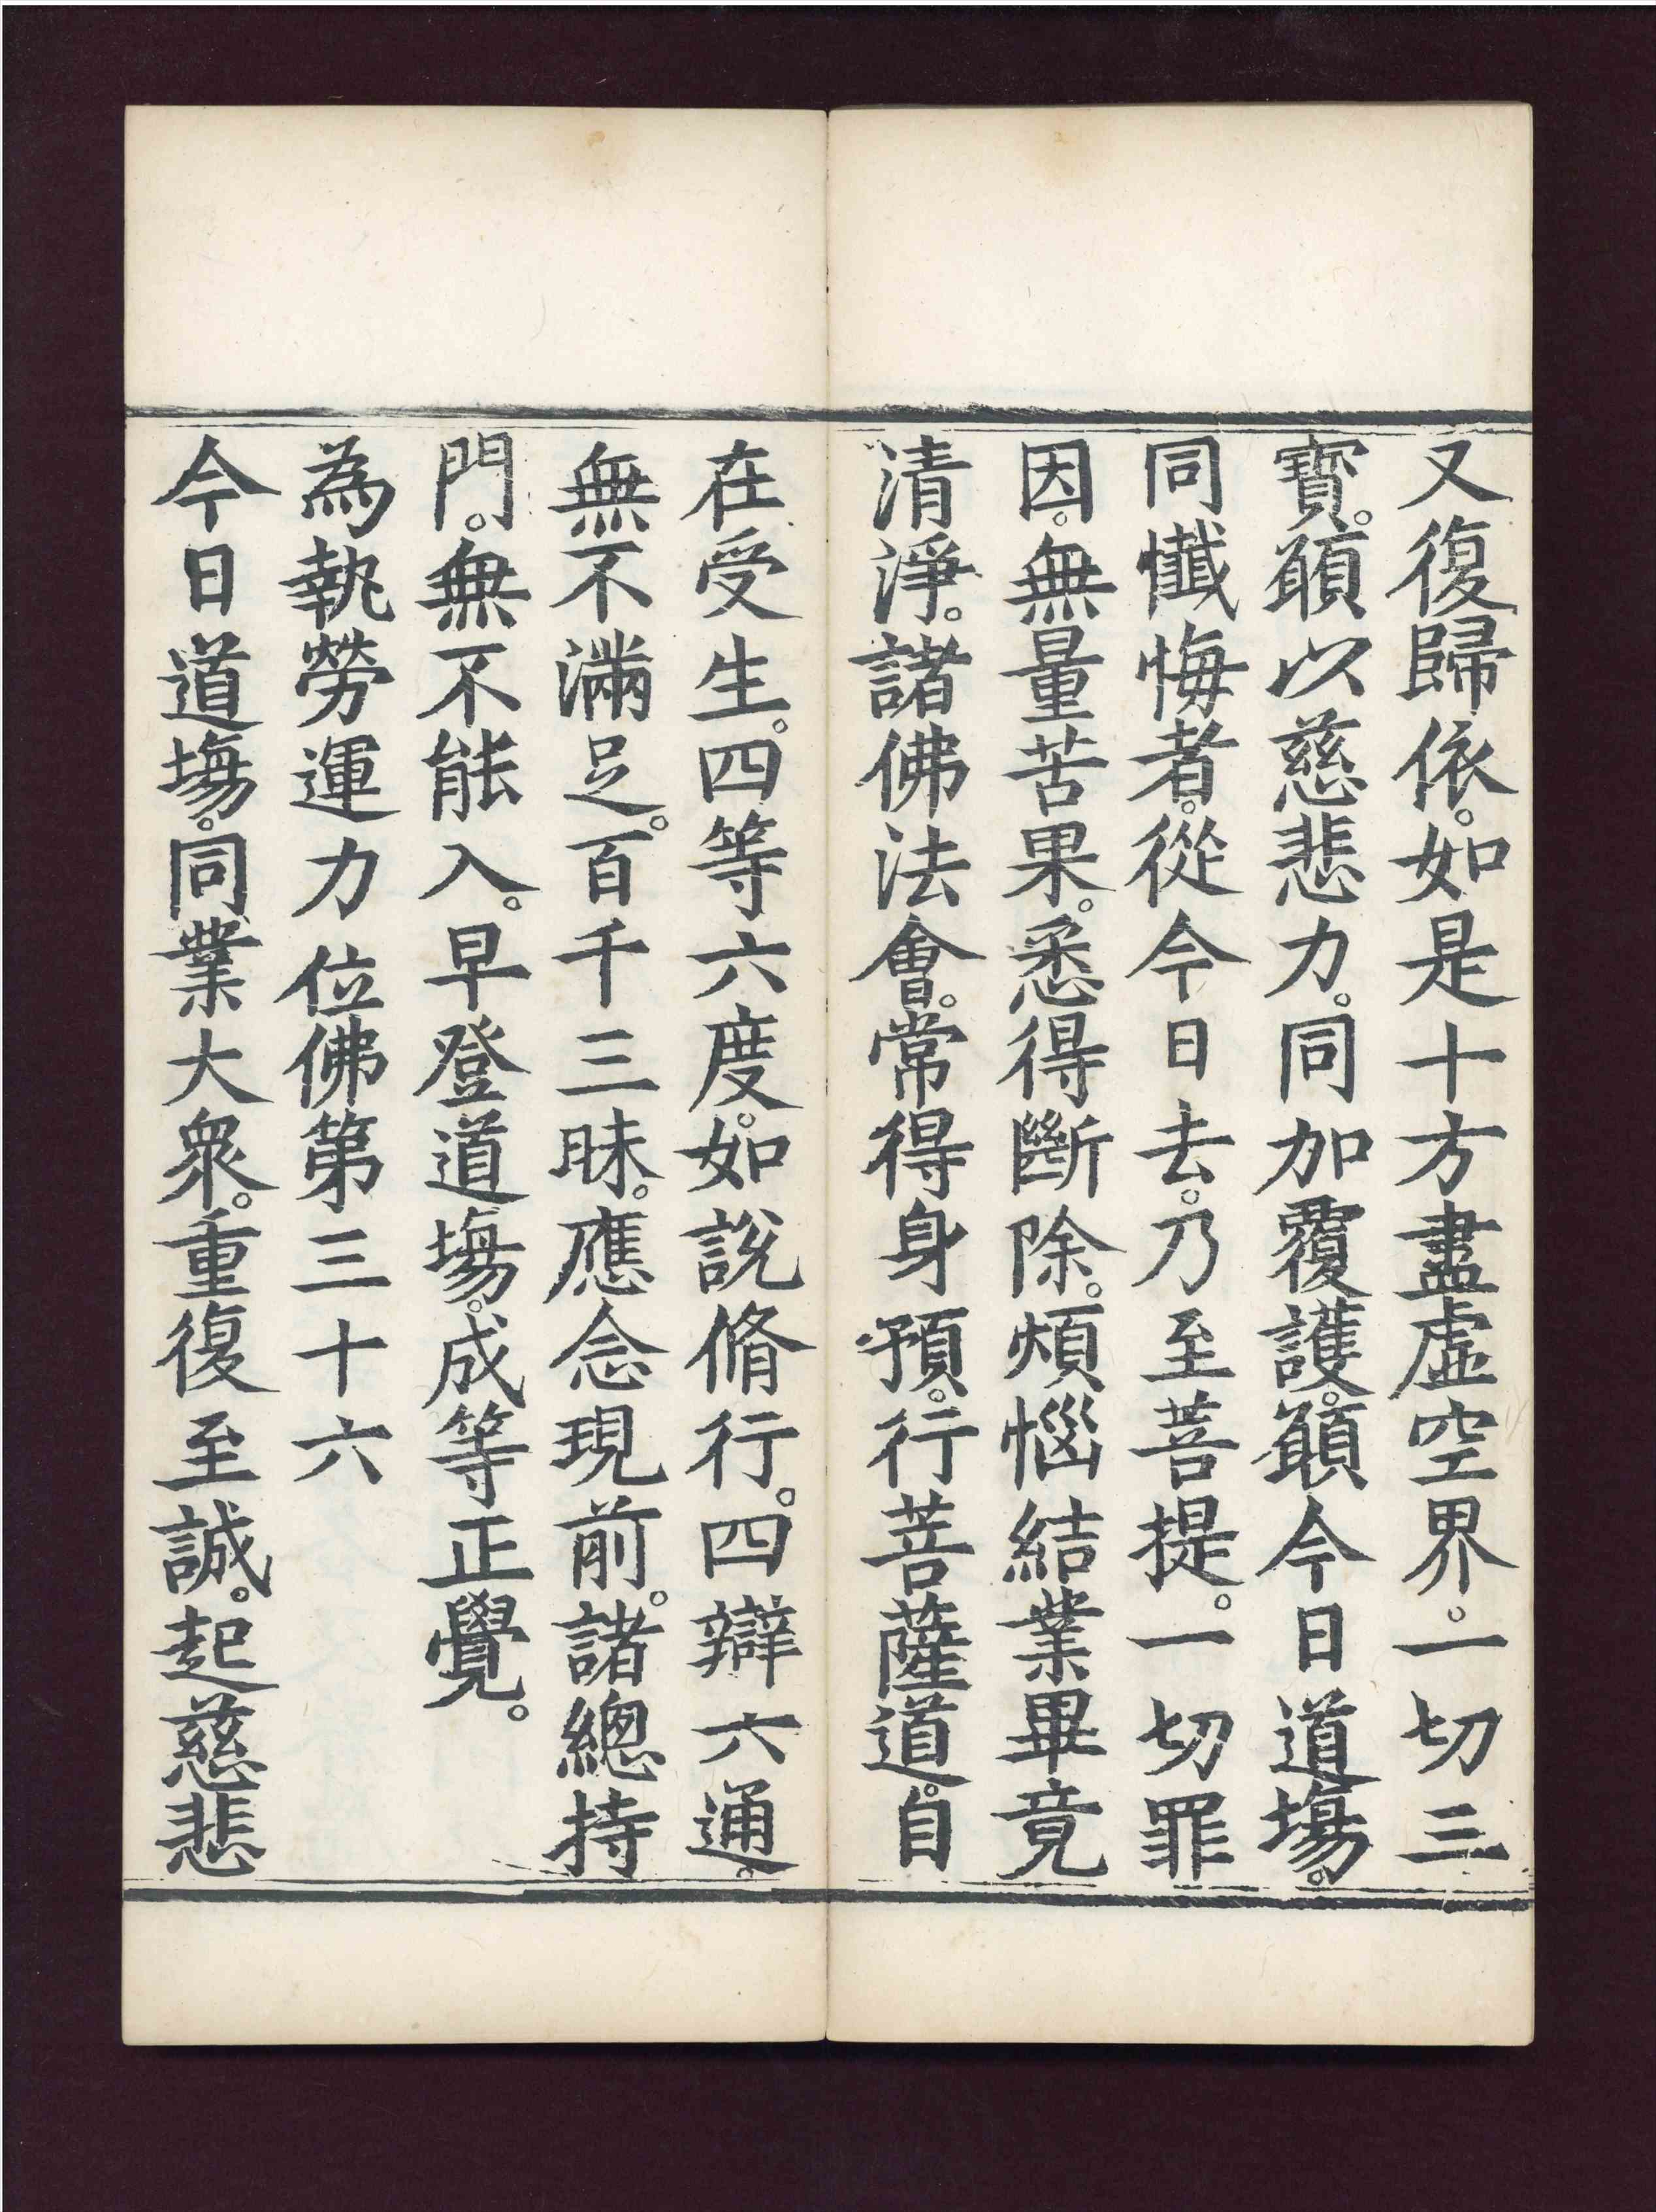 又復歸依。如是十方盡虛空界。一切三
寶。願以慈悲力。同加覆護。願今日道場。
同懺悔者。從今日去。乃至菩提。一切罪
因。無量苦果。悉得斷除。煩惱結業畢竟
清淨。諸佛法會。常得身預。行菩薩道。自
在受生。四等六度。如說脩行。四辯六通。
無不滿足。百千三昧。應念現前。諸總持
門。無不能入。早登道場。成等正覺。
為執勞運力位佛第三十六
今日道場。同業大衆。重復至誠。起慈悲